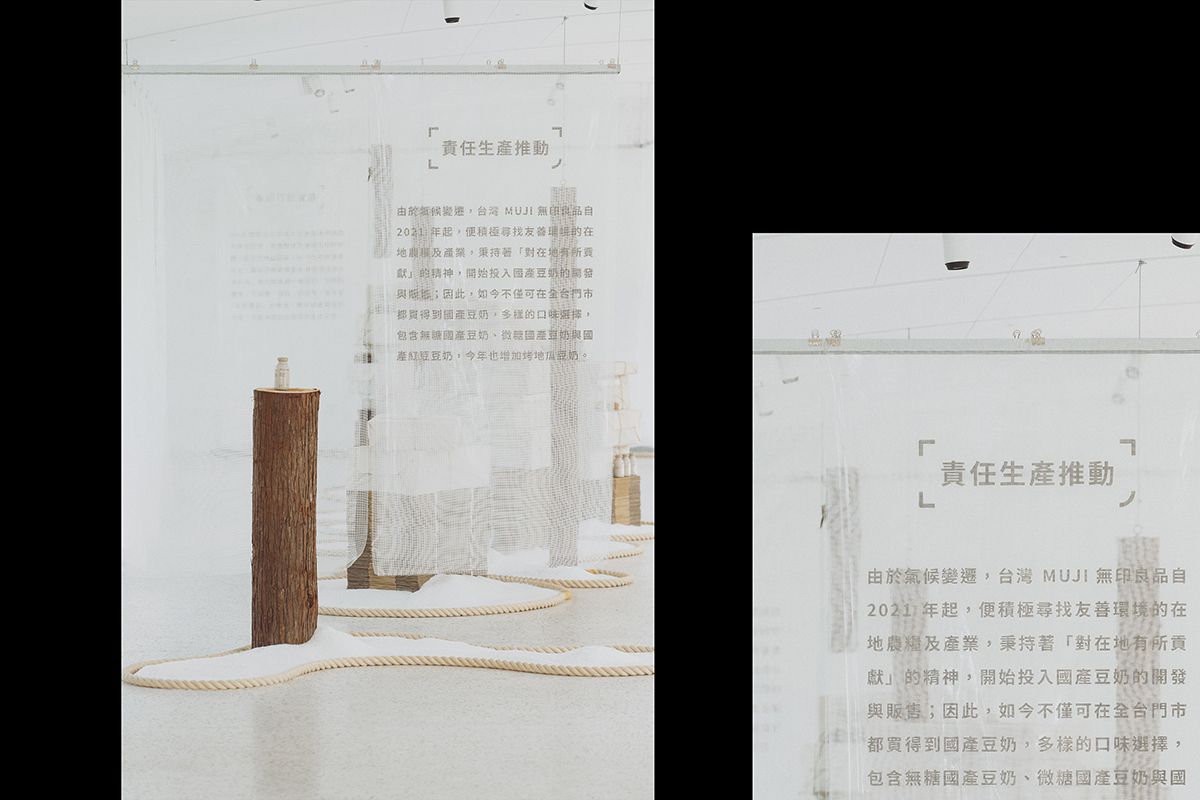 責任生產推動
由於氣候變遷，台灣 MUJI 無印良品自
2021 年起，便積極尋找友善環境的在
地農糧及產業，秉持著「對在地有所貢
獻」的精神，開始投入國產豆奶的開發
與販售；因此，如今不僅可在全台門市
都買得到國產豆奶，多樣的口味選擇，
包含無糖國產豆奶、微糖國產豆奶與國
產紅豆豆奶，今年也增加烤地瓜豆奶。
責任生產推動
由於氣候變遷，台灣 MUJI 無印良品自
2021 年起，便積極尋找友善環境的在
地農糧及產業，秉持著「對在地有所貢
獻」的精神，開始投入國產豆奶的開發
與販售；因此，如今不僅可在全台門市
都買得到國產豆奶，多樣的口味選擇，
包含無糖國產豆奶、微糖國產豆奶與國